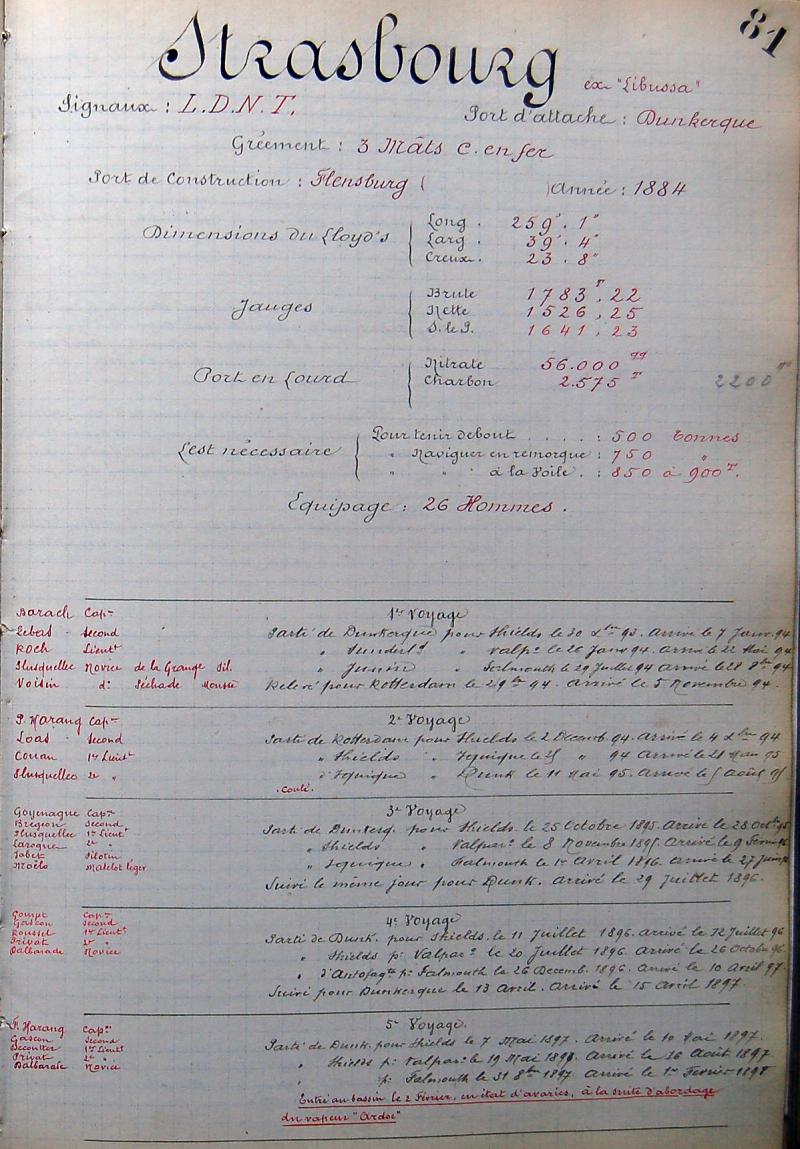 81
Strasbourg
ex "Libussa"
Signaux : L.D.N.T. Port d'attache : Dunkerque
Gréement : 3 Mâts c. en fer
Port de Construction : Flensburg ( ) Année : 1884
Dimensions du Lloyd's
Long . 259' . 1"
Larg . 39' . 4"
Creux . 23 . 8"
Jauges
Brute 1783T,22
Nette 1526,25
S. le P. 1641,23
Port en Lourd
Nitrate 56.000 qq
Charbon 2.575 T 2200
Lest nécessaire
Pour tenir debout . . . . : 500 tonnes
" Naviguer en remorque : 750 "
" " à la Voile . : 850 à 900T.
Equipage : 26 Hommes .
Barach Capne
Lebas Second
Roch Lieutt
Husquellec Novice de la Grange Pil.
Voisin do Séchade Mousse
1er Voyage
Parti de Dunkerque pour Shields le 30 Xbre 93. Arrivé le 7 Janv. 94
" Sunderld " Valpo le 26 Janv 94. Arrivé le 22 Mai 94
" Junin " Falmouth le 29 Juillet 94 Arrivé le 28 8bre 94
Relevé pour Rotterdam le 29 bre 94. Arrivé le 5 Novembre 94.
P. Harang Capne
Loas Second
Conan 1er Lieutt
Husquellec 2e "
2e Voyage
Parti de Rotterdam pour Shields le 2 Décemb. 94. Arrivé le 4 Xbre 94
" Shields " Iquique le 25 " 94 Arrivé le 21 Mars 95
d'Iquique " Dunk le 11 Mai 95. Arrivé le 5 Août 95
. coulé.
Goyenague Capne
Bregeon Second
Husquellec 1er Lieutt
Laroque 2e "
Jobet Pilotin
Noëlo Matelot léger
3e Voyage
Parti de Dunkerq. pour Shields. le 25 Octobre 1895. Arrivé le 28 Octbre 95
" Shields " Valparo. le 8 Novembre 1895. Arrivé le 9 Février 96
" Iquique " Falmouth le 1er Avril 1896. Arrivé le 27 Juin
Suivi le même jour pour Dunk. Arrivé le 29 Juillet 1896.
Goupt Capne
Gascon Second
Roussel 1er Lieutt
Privat 2e "
Dalbarade Novice
4e Voyage
Parti de Dunk. pour Shields. le 11 Juillet 1896. arrivé le 12 Juillet 96
" Shields pr Valparo. le 20 Juillet 1896. Arrivé le 26 Octobre 96.
" d'Antofagta pr Falmouth le 26 Decemb. 1896. Arrivé le 10 Avril 97.
Suivi pour Dunkerque le 13 Avril. Arrivé le 15 Avril 1897.
F. Harang Capne
Gascon Second
Decoutter 1er Lieutt
Privat 2e "
Dalbarade Novice
5e Voyage.
Parti de Dunk. pour Shields le 7 Mai 1897. Arrivé le 10 Mai 1897.
" Shields pr Valparo. le 19 Mai 1897. Arrivé le 16 Août 1897
" pr Falmouth le 31 8bre 1897. Arrivé le 1er Fevrier 1898
Entré au bassin le 2 Février, en état d'avaries, à la suite d'abordage
du vapeur "Ardoë"